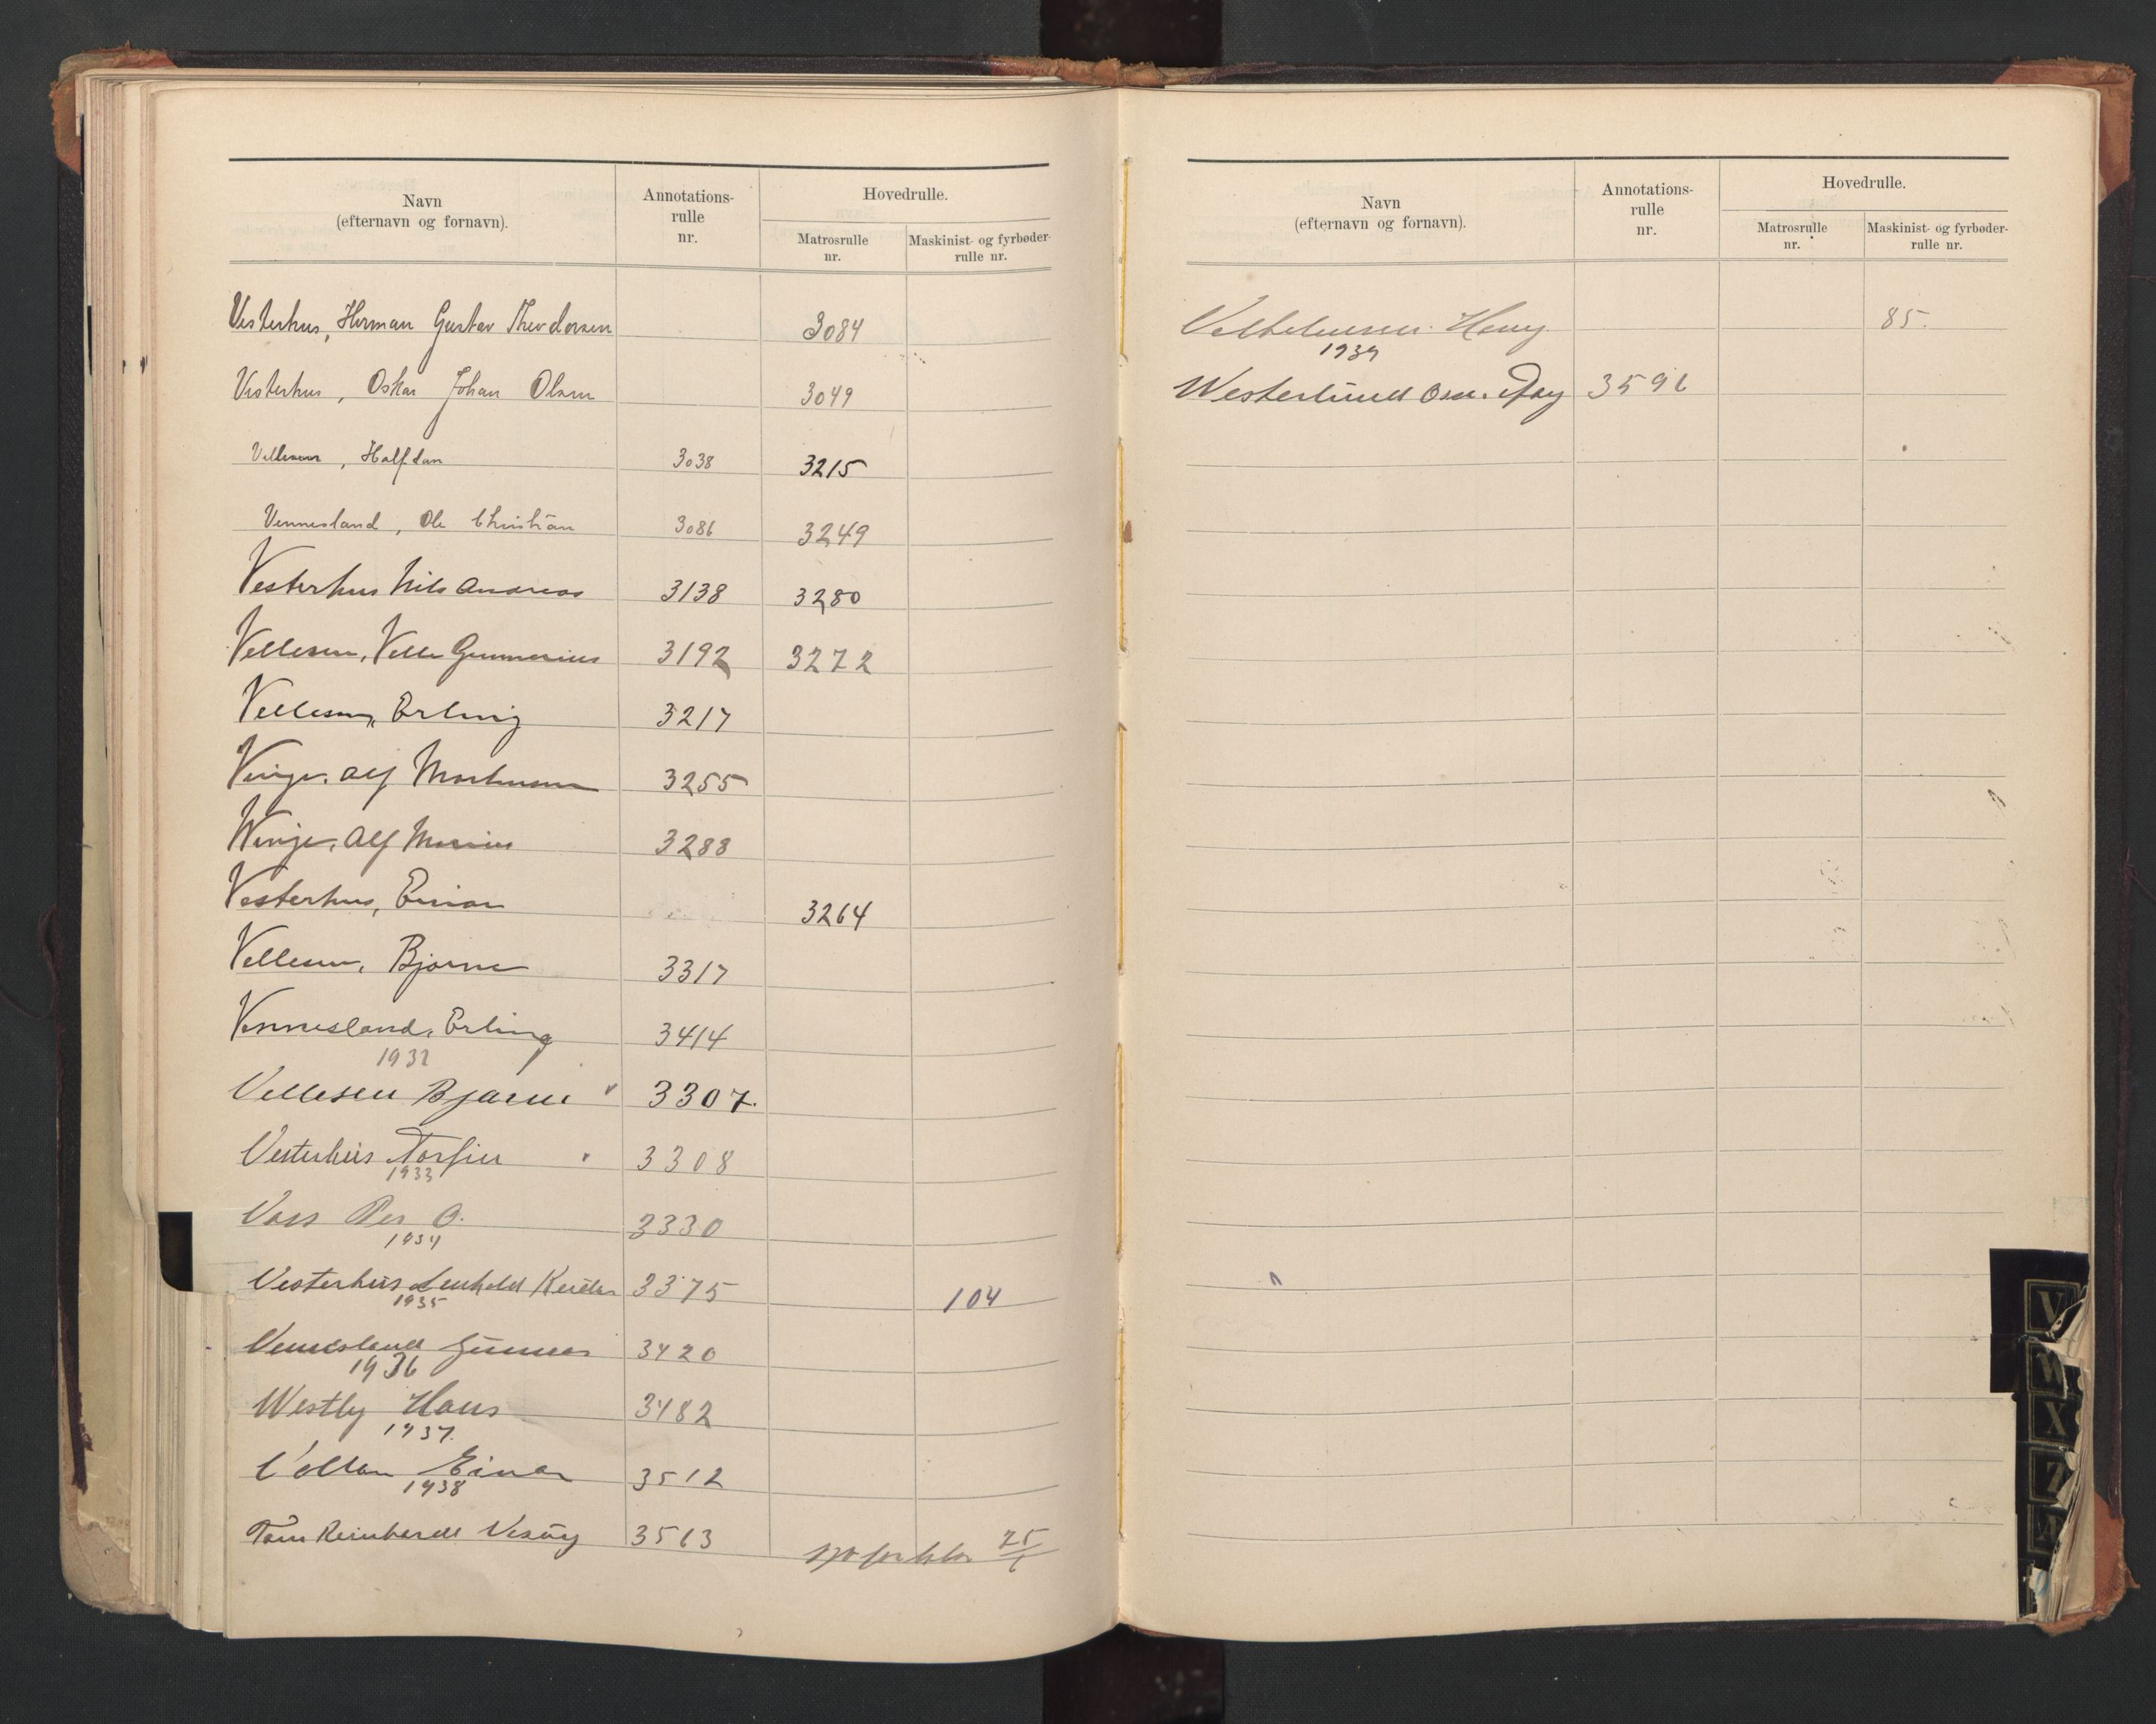 Navn (efternavn og fornavn). Annotations-rulle nr. Hovedrulle. Matrosrulle nr. Maskinist- og fyrbøder-rulle nr.
Vesterhus, Herman Gustav Theodorsen 3084
Vesterhus, Oskar Johan Olsen 3049
Vellesen, Halfdan 3038 3215
Vennesland, Ole Christian 3086 3249
Vesterhus Nils Andreas 3138 3280
Vellesen, Velle Gunnerius 3192 3272
Vellesen, Erling 3217
Vinje, Alf 3255
Winje, Alf Marius 3288
Vesterhus, Einar 3264
Vellesen, Bjarne 3317
Vennesland, Erling 3414
1932
Vellesen Bjarne v 3307.
Vesterhus Torfin v 3308
1933
Voss Per O. 3330
1934
Vesterhus 3375 104
1935
Vennesland Gunnar 3420
1936
Westly Hans 3482
1937.
Einar 3512
1938
Tom Reinhardt 3513
Navn (efternavn og fornavn). Annotations-rulle nr. Hovedrulle. Matrosrulle nr. Maskinist- og fyrbøder-rulle nr.
Henry 85.
1939
Westerlund Dag 3596
V
W
X
Z